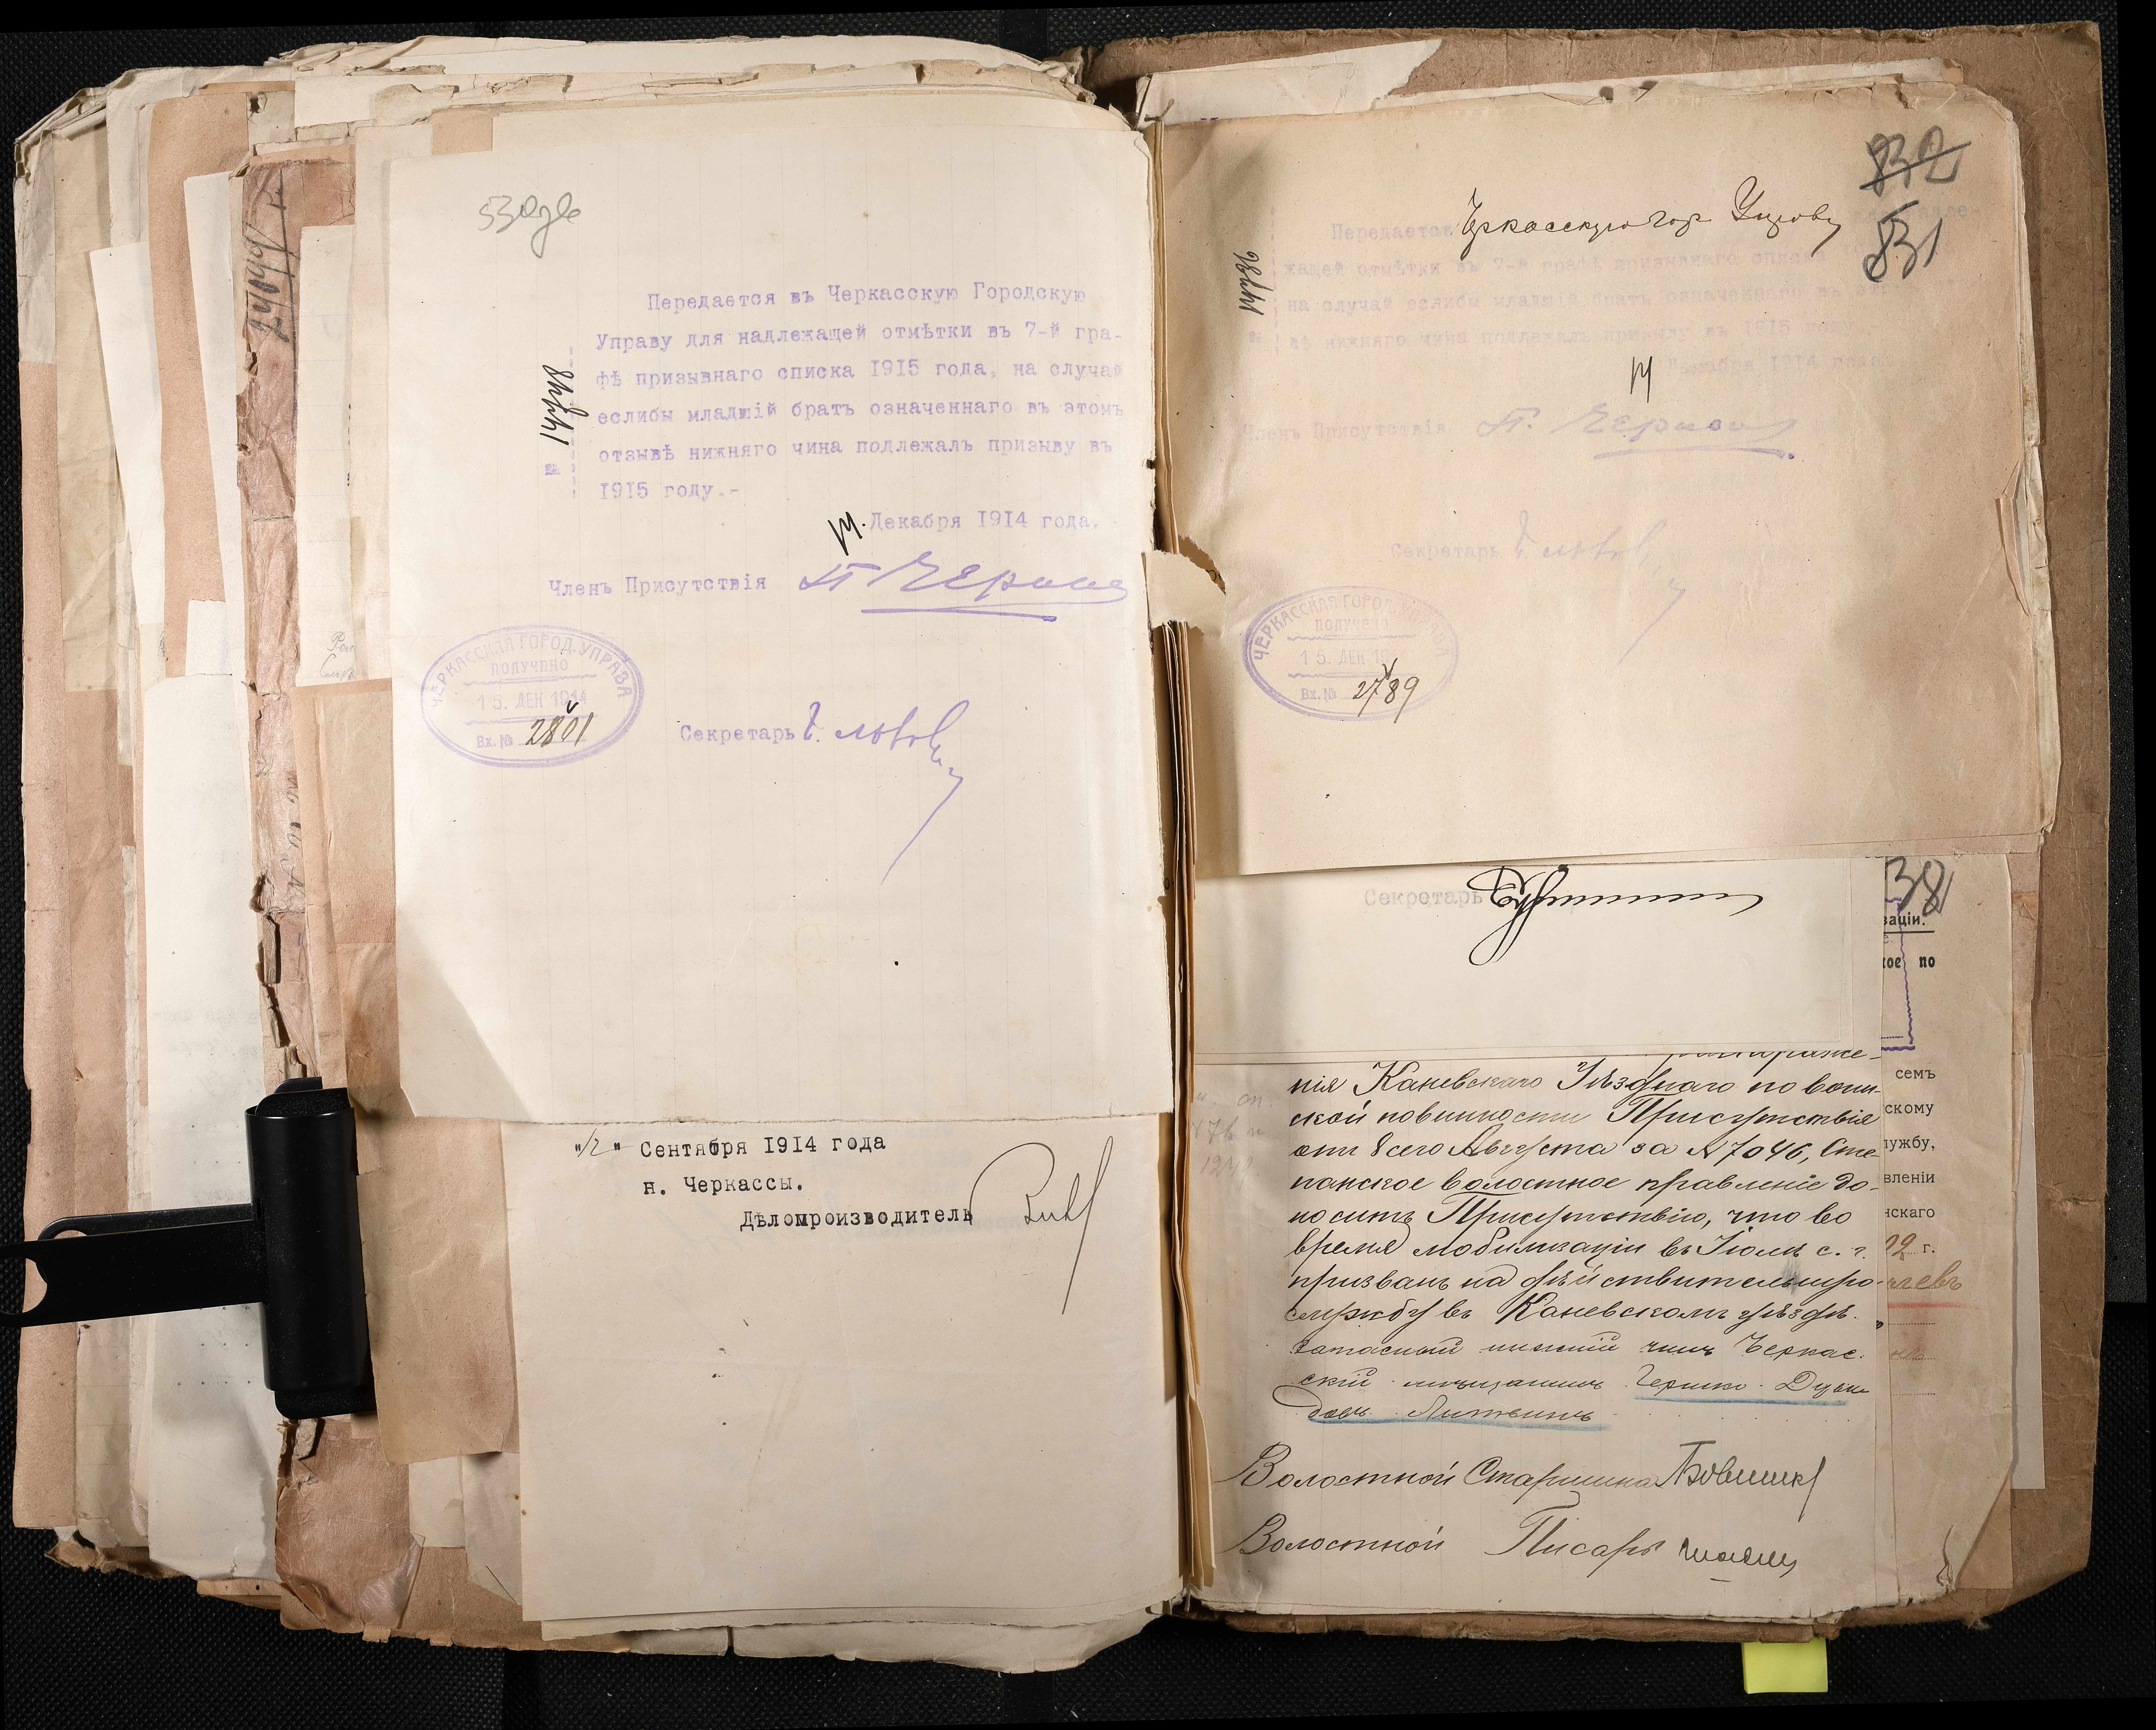 530дв
Передается въ Черкасскую Городскую
Управу для надлежащей отмѣтки въ 7-й гра-
фѣ призывнаго списка 1915 года, на случай
еслибы младшій братъ означеннаго въ этомъ
отзывѣ нижняго чина подлежалъ призыву въ
1915 году.-
№
14. Декабря 1914 года.
Членъ Присутствія
ЧЕРКАССКАЯ ГОРОД. УПРАВА
ПОЛУЧЕНО
15. ДЕК 1914
Вх. № 2801
Секретарь
"12" Сентября 1914 года
н. Черкассы.
Дѣлопроизводитель
832
831
Передается Черкасскую Гор. Управу
жащей отмѣтки въ 7-й графѣ призывнаго списка
на случай еслибы младшій братъ означеннаго въ
вѣ нижняго чина подлежалъ призыву въ 1915 году
№
14 Декабря 1914 года
Членъ Присутствія
Секретарь
ЧЕРКАССКАЯ ГОРОД. УПРАВА
ПОЛУЧЕНО
15. ДЕК 1914
Вх. № 2789
Секретарь
38
заціи.
кое по
семъ
скому
лужбу,
вленіи
нскаго
г.
нія Каневскаго Уѣзднаго по воин-
ской повинности Присутствія
отъ 8 сего Августа за № 7046, Сте-
панское волостное правленіе до-
носитъ Присутствію, что во
время мобилизаціи въ Іюлѣ с. г.
призванъ на дѣйствительную
службу въ Каневскомъ уѣздѣ.
запасный нижній чинъ Черкас-
скій мѣщанинъ Гершко Дуви
довъ Литвинъ
Волостной Старшина
Волостной Писарь